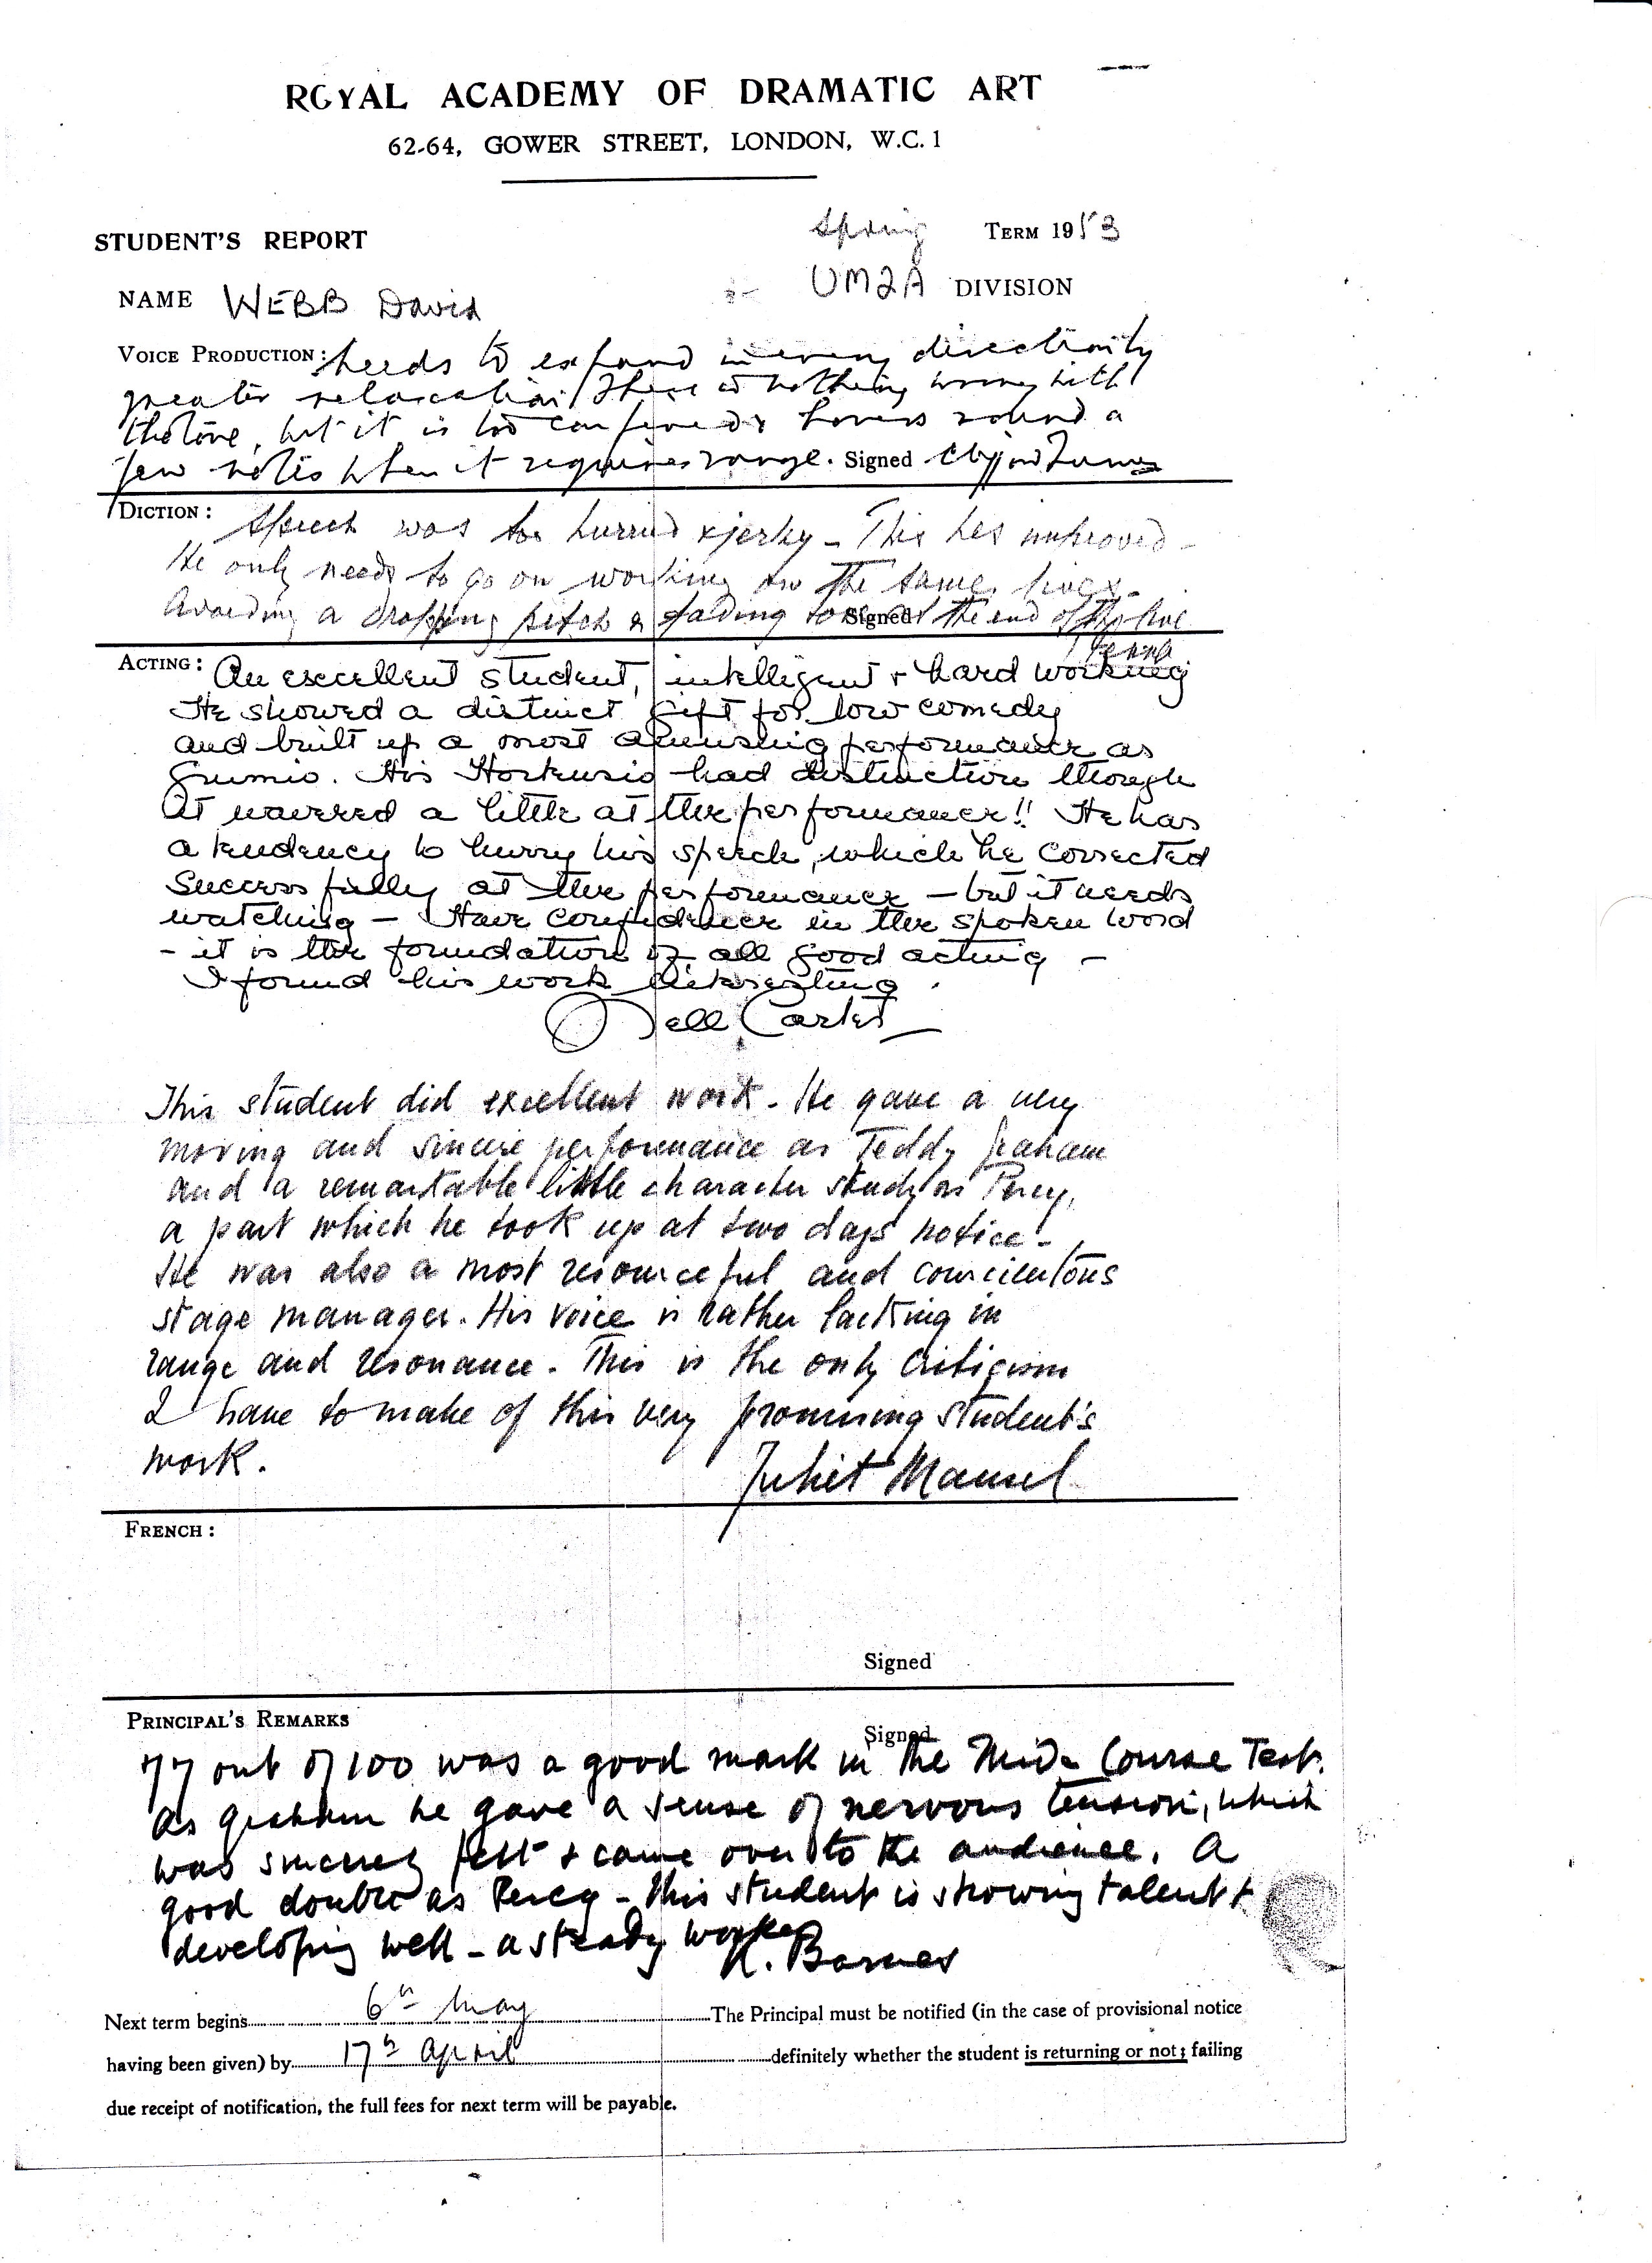 ROYAL ACADEMY OF DRAMATIC ART
62-64, GOWER STREET, LONDON, W.C. 1
STUDENT'S REPORT
Spring TERM 1953
NAME WEBB David
UM2A DIVISION
VOICE PRODUCTION: Needs to expand in every direction by
greater relaxation. There is nothing wrong with
the tone, but it is too confined & hovers round a
few notes when it requires range. Signed Clifford Turner
DICTION: Speech was too hurried & jerky – This has improved –
He only needs to go on working on the same lines –
Avoiding a dropping pitch & fading tone at the end of the line
Signed
ACTING: An excellent student, intelligent + hard working
He showed a distinct gift for low comedy
and built up a most amusing performance as
Grumio. His Hortensio had distinction though
it wavered a little at the performance!! He has
a tendency to hurry his speech, which he corrected
successfully at the performance – but it needs
watching – Have confidence in the spoken word
– it is the foundation of all good acting –
I found his work interesting.
Nell Carter
This student did excellent work. He gave a very
moving and sincere performance as Teddy Graham
and a remarkable little character study as Percy,
a part which he took up at two days notice.
He was also a most resourceful and conscientous
stage manager. His voice is rather lacking in
range and resonance. This is the only criticism
I have to make of this very promising student's
work.
Juliet Mansel
FRENCH:
Signed
PRINCIPAL'S REMARKS
Signed
77 out of 100 was a good mark in the Mid-Course Test.
As Graham he gave a sense of nervous tension, which
was sincerely felt & came over to the audience. A
good double as Percy – this student is showing talent +
developing well – a steady worker
K. Barnes
Next term begins 6th May The Principal must be notified (in the case of provisional notice
having been given) by 17th April definitely whether the student is returning or not; failing
due receipt of notification, the full fees for next term will be payable.